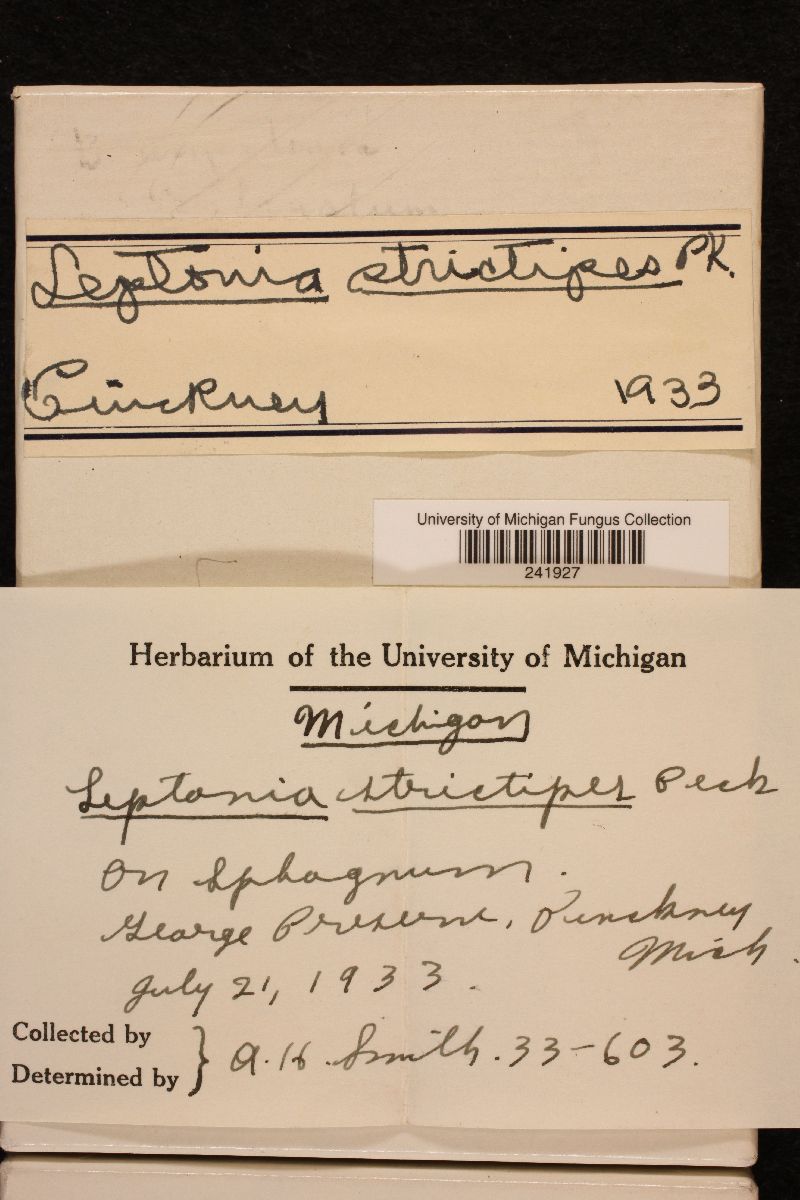 Leptonia strictipes Pk.
Pinckney 1933
University of Michigan Fungus Collection
241927
Herbarium of the University of Michigan
Michigan
Leptonia strictipes Peck
On Sphagnum.
George Preserve, Pinckney
Mich.
July 21, 1933.
Collected by
Determined by } A. H. Smith. 33-603.